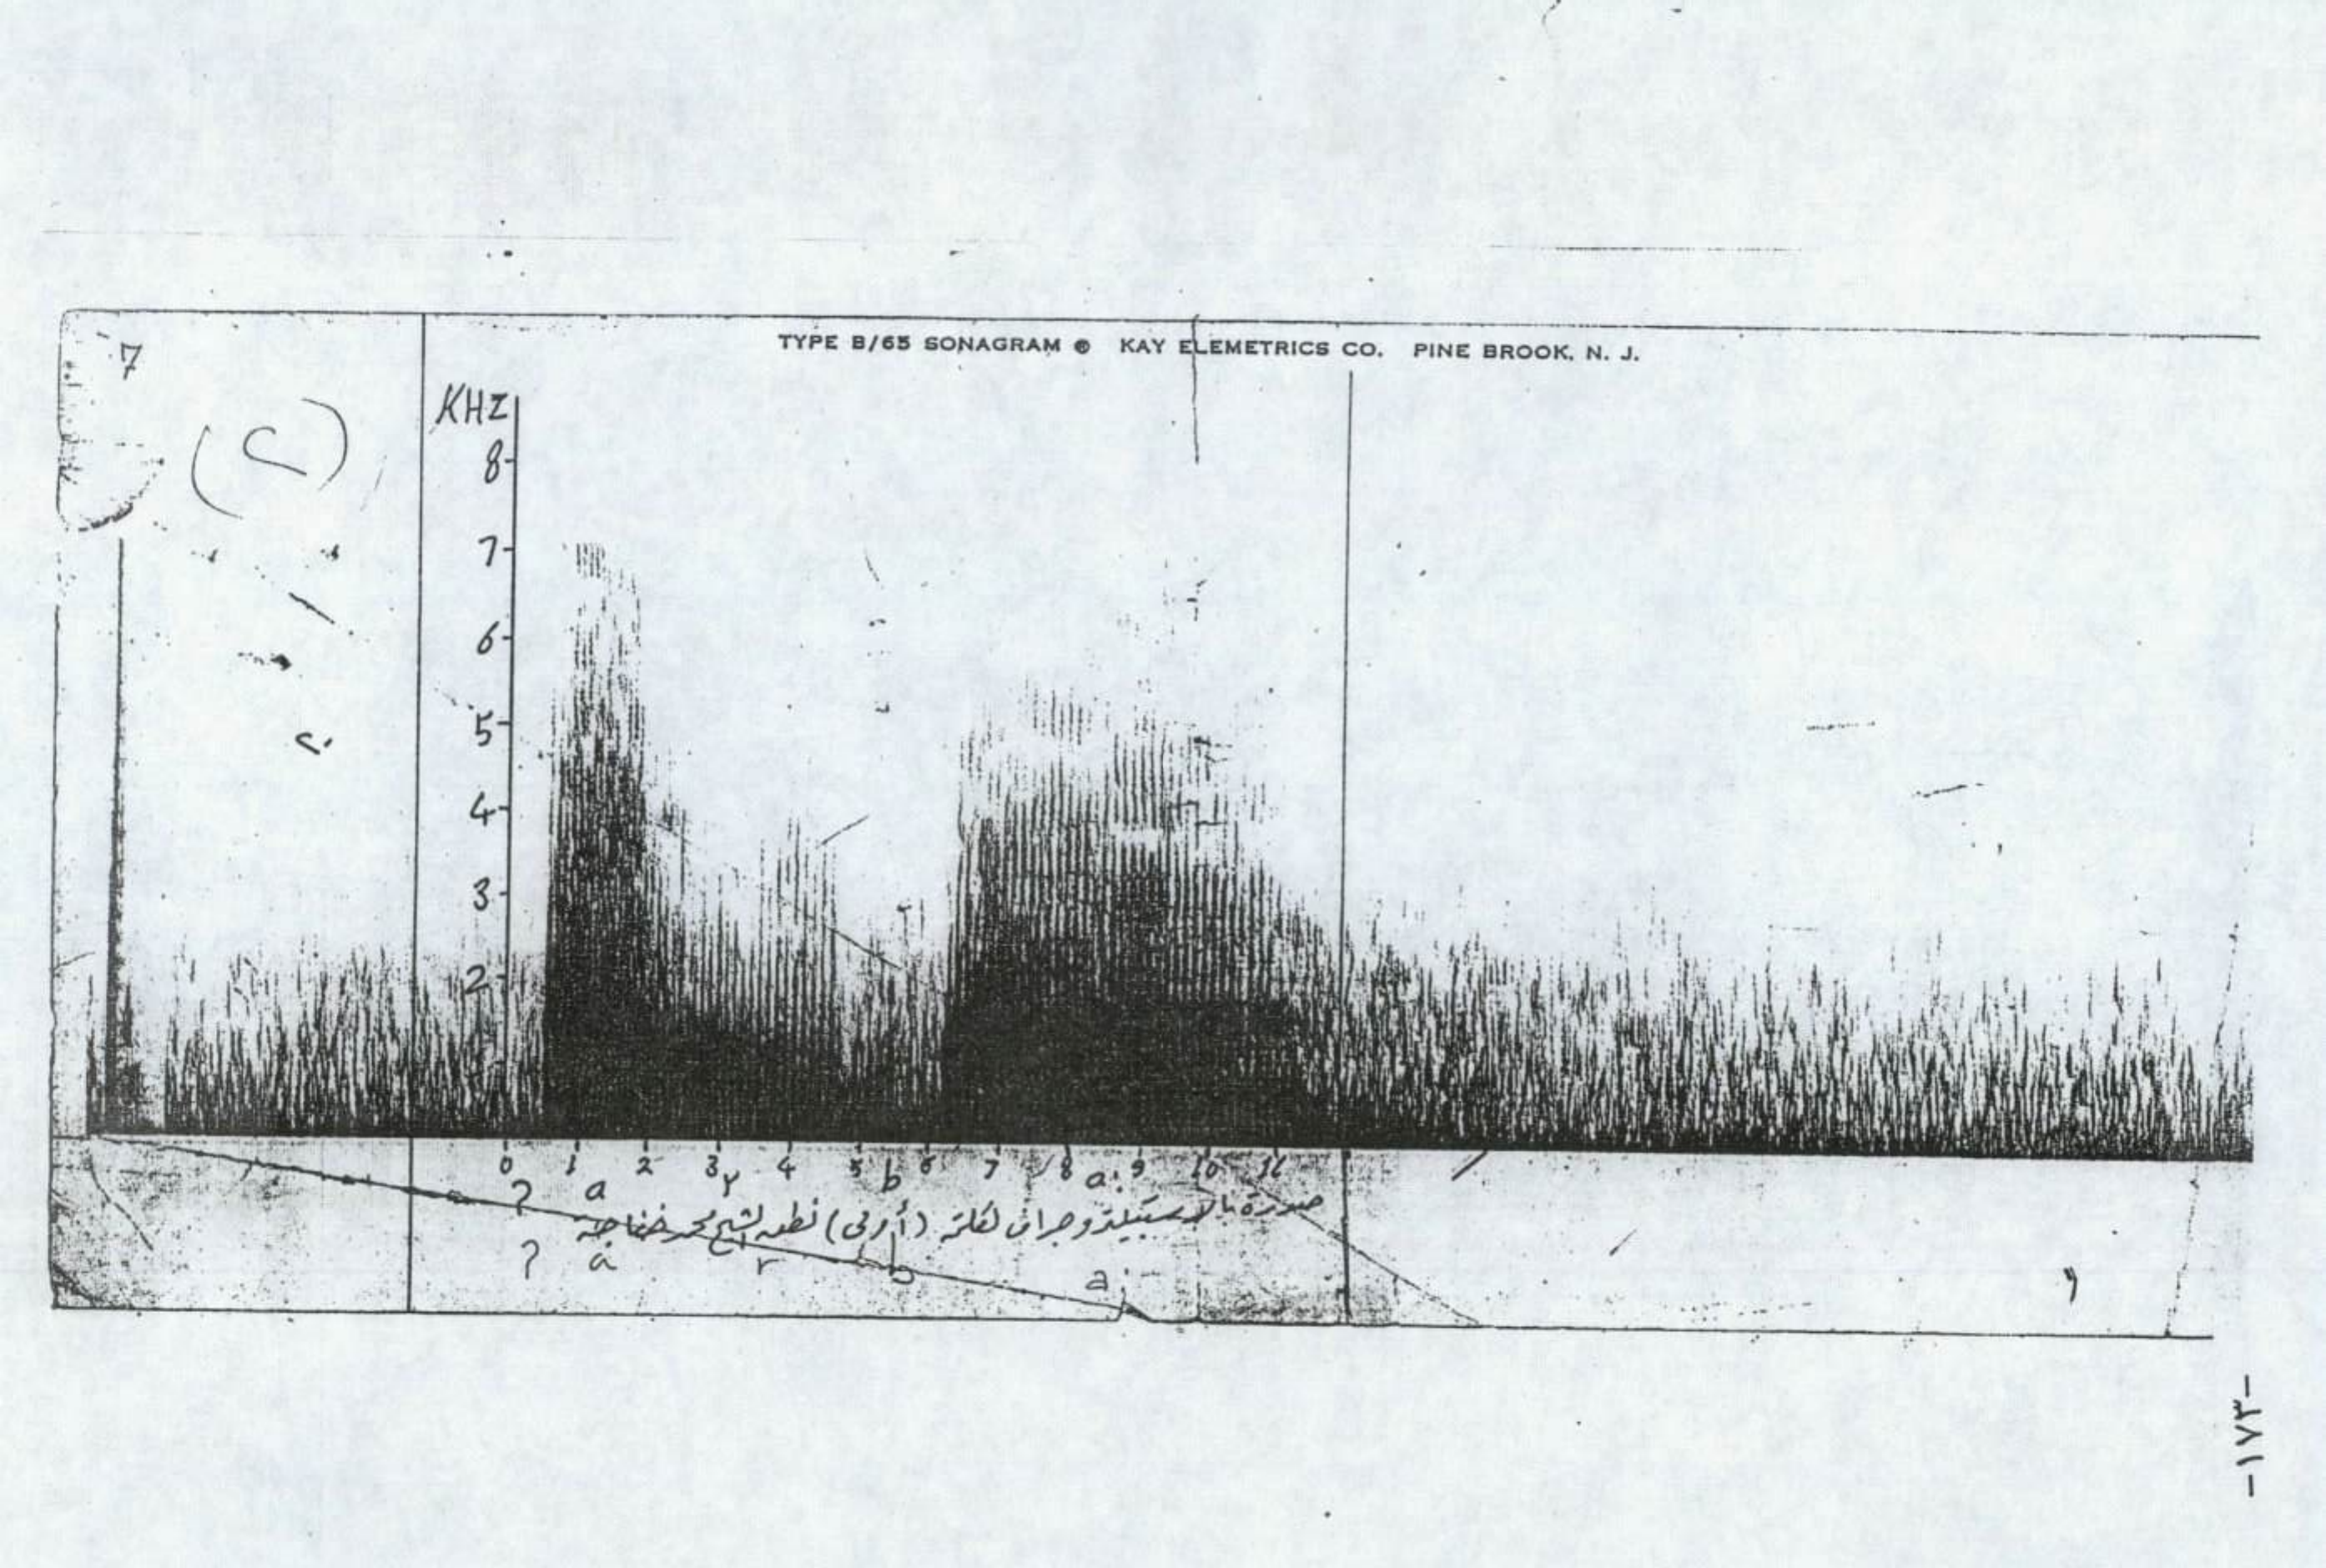 TYPE B/65 SONAGRAM ® KAY ELEMETRICS CO. PINE BROOK, N. J.
7
KHZ
8
7
6
5
4
3
2
0 1 2 3 4 5 6 7 8 9 10 11
? a r b a:
صورة بالاسبكتروجراف لكلمة (أربى) نطق الشيخ محمد خفاجة
? a r b a:
-١٧٣-